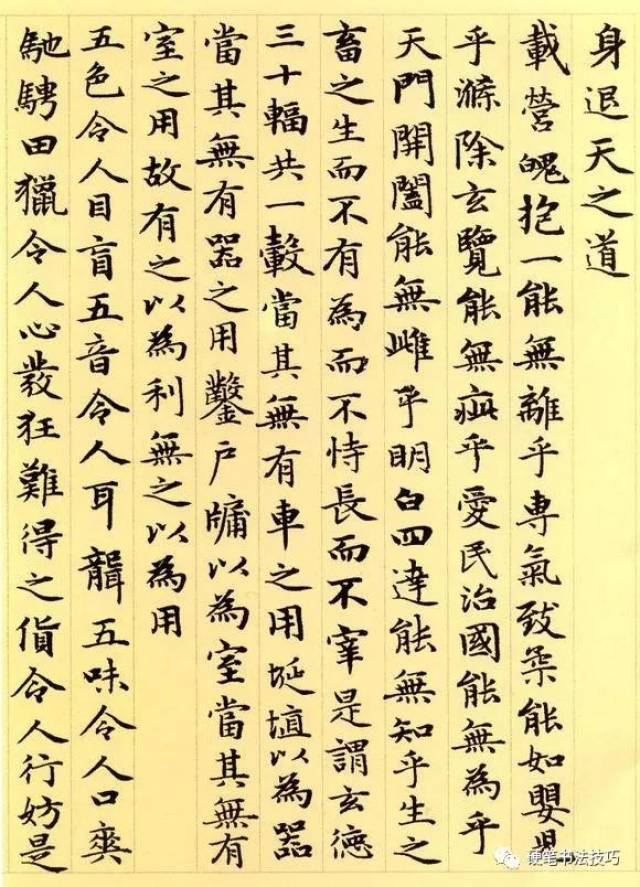 身退天之道
載營魄抱一能無離乎專氣致柔能如嬰兒
乎滌除玄覽能無疵乎愛民治國能無為乎
天門開闔能無雌乎明白四達能無知乎生之
畜之生而不有為而不恃長而不宰是謂玄德
三十輻共一轂當其無有車之用埏埴以為器
當其無有器之用鑿戶牖以為室當其無有
室之用故有之以為利無之以為用
五色令人目盲五音令人耳聾五味令人口爽
馳騁田獵令人心發狂難得之貨令人行妨是
硬笔书法技巧